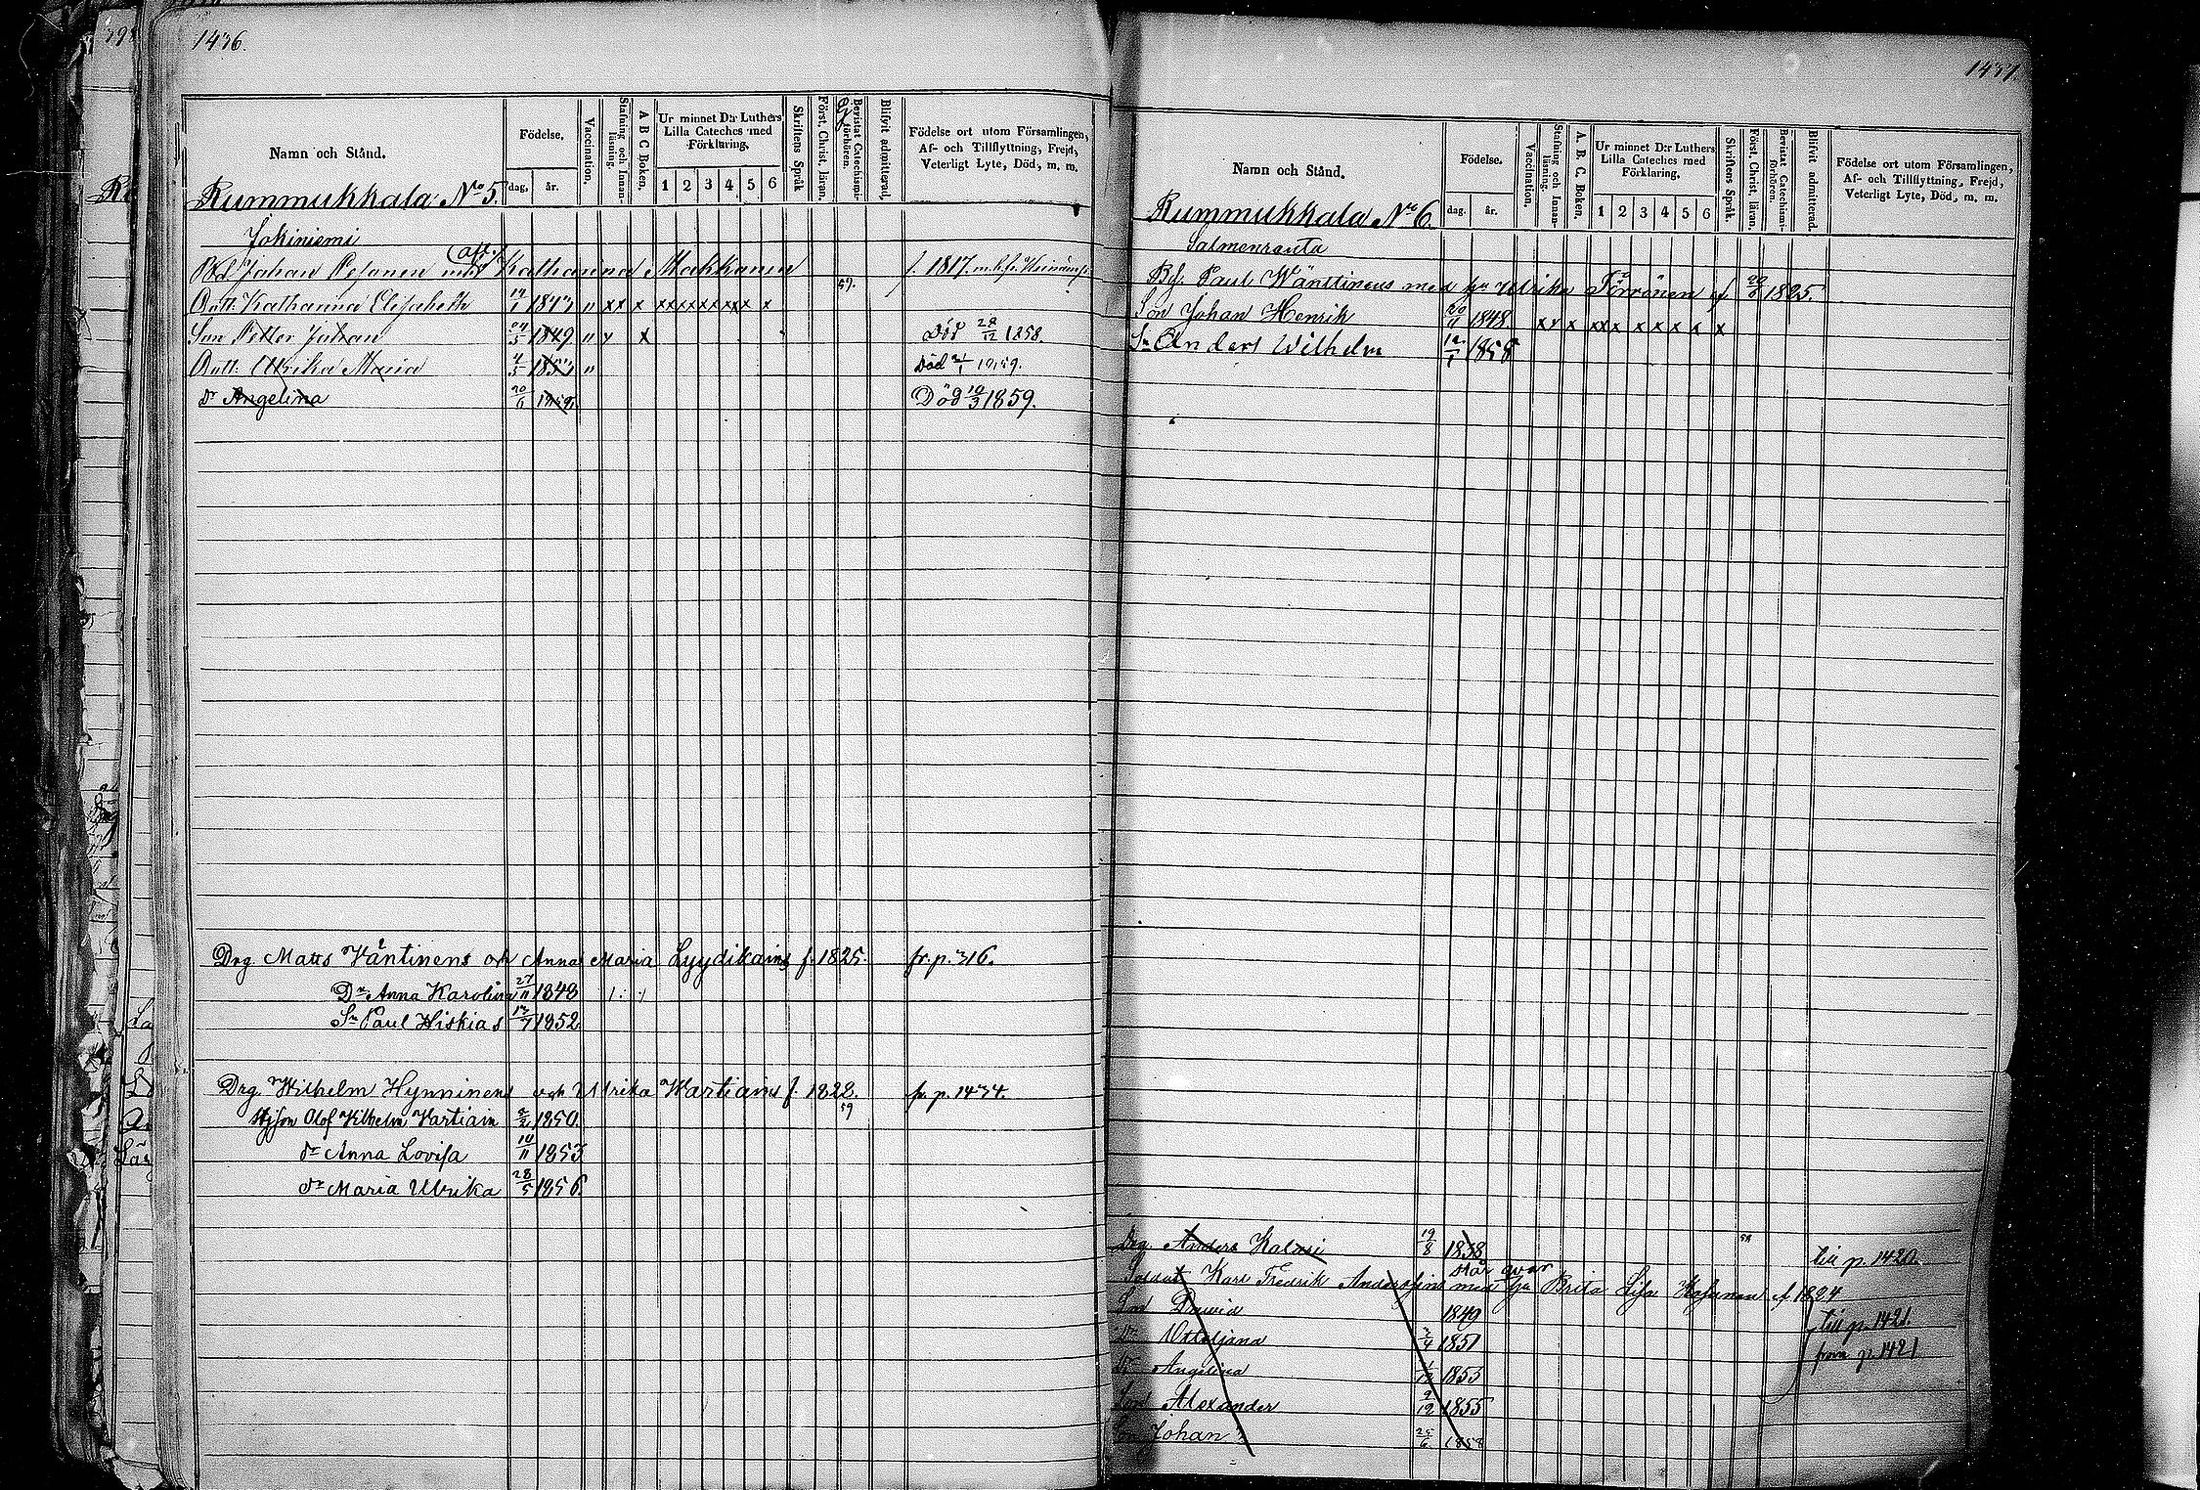 1436.
Namn och Stånd.
Födelse.
dag, år.
Vaccination.
Stafning och Innanläsning.
A B C Boken.
Ur minnet D:r Luthers Lilla Cateches med Förklaring.
1 2 3 4 5 6
Skriftens Språk
Först. Christ. läran.
Bevistat Catechismiförhören.
Blifvit admitterad.
Födelse ort utom Församlingen,
Af- och Tillflyttning, Frejd,
Veterligt Lyte, Död, m. m.
Rummukkala No 5.
Jokiniemi
Johan Pesonen Katharina Makkonen f. 1817.
Dott: Katharina Elisabeth
Son Petter Johan 1849 Död 28/12 1858.
Dott: Ulrika Maria Död
Dr Angelina 20/6 Död 10/3 1859.
Drg. Matts Wäntinens och Anna Maria Lyydikains f. 1825. fr. p. 316.
Dr Anna Karolina 27/11 1848
Sn Paul Hiskias 1852
Drg. Wilhelm Hynninens och Ulrika Wartiains f. 1828. fr. p. 1434.
59
Olof Vilhelm Vartiain 1850.
Dr Anna Lovisa 10/11 1853
Dr Maria Ulrika 28/5 1856.
1437.
Namn och Stånd.
Födelse.
dag. år.
Vaccination.
Stafning och Innanläsning.
A. B. C. Boken.
Ur minnet D:r Luthers Lilla Cateches med Förklaring.
1 2 3 4 5 6
Skriftens Språk.
Först. Christ. läran.
Bevistat Catechismiförhören.
Blifvit admitterad.
Födelse ort utom Församlingen,
Af- och Tillflyttning, Frejd,
Veterligt Lyte, Död, m. m.
Rummukkala No 6.
Salmenranta
Paul Wänttinens med Ulrika Törrönen 1825.
Son Johan Henrik 20/11 1848
Sn Anders Wilhelm 1858
Drg Anders Kalmi 19/8 1838 till p. 1420.
står qvar
Soldat Karl Fredrik Anderssins med Brita Lisa f. 1824
Son David 1849 till p. 1421.
Dr Ottiljana 1851 från p. 1421
Dr Angelina 1855
Son Alexander 9/12 1855
Son Johan 25/6 1858